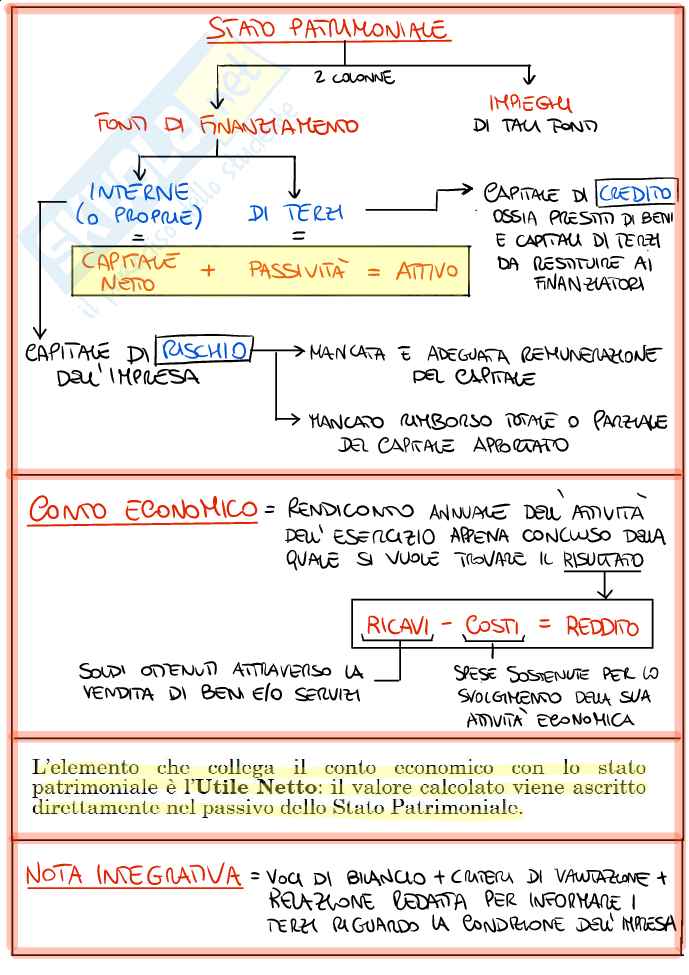 STATO PATRIMONIALE
2 COLONNE
FONTI DI FINANZIAMENTO
IMPIEGHI
DI TALI FONTI
INTERNE
(O PROPRIE)
DI TERZI
CAPITALE DI CREDITO
OSSIA PRESTITI DI BENI
E CAPITALI DI TERZI
DA RESTITUIRE AI
FINANZIATORI
= =
CAPITALE
NETTO + PASSIVITÀ = ATTIVO
CAPITALE DI RISCHIO
DELL'IMPRESA
MANCATA E ADEGUATA REMUNERAZIONE
DEL CAPITALE
MANCATO RIMBORSO TOTALE O PARZIALE
DEL CAPITALE APPORTATO
CONTO ECONOMICO = RENDICONTO ANNUALE DELL'ATTIVITÀ
DELL'ESERCIZIO APPENA CONCLUSO DELLA
QUALE SI VUOLE TROVARE IL RISULTATO
RICAVI - COSTI = REDDITO
SOLDI OTTENUTI ATTRAVERSO LA
VENDITA DI BENI E/O SERVIZI
SPESE SOSTENUTE PER LO
SVOLGIMENTO DELLA SUA
ATTIVITÀ ECONOMICA
L'elemento che collega il conto economico con lo stato
patrimoniale è l'Utile Netto: il valore calcolato viene ascritto
direttamente nel passivo dello Stato Patrimoniale.
NOTA INTEGRATIVA = VOCI DI BILANCIO + CRITERI DI VALUTAZIONE +
RELAZIONE REDATTA PER INFORMARE I
TERZI RIGUARDO LA CONDIZIONE DELL'IMPRESA